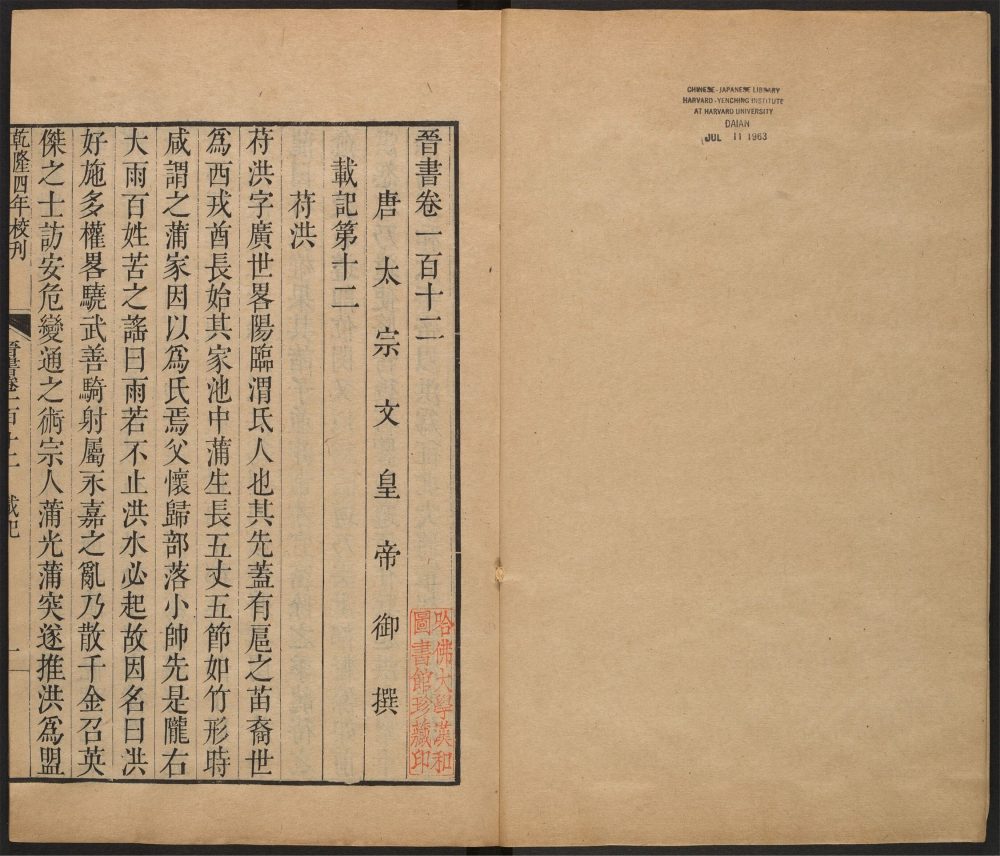 CHINESE-JAPANESE LIBRARY
HARVARD-YENCHING INSTITUTE
AT HARVARD UNIVERSITY
DAIAN
JUL 11 1963
晉書卷一百十二
唐太宗文皇帝御撰
載記第十二
苻洪
苻洪字廣世畧陽臨渭氐人也其先蓋有扈之苗裔世
爲西戎酋長始其家池中蒲生長五丈五節如竹形時
咸謂之蒲家因以爲氏焉父懷歸部落小帥先是隴右
大雨百姓苦之謠曰雨若不止洪水必起故因名曰洪
好施多權畧驍武善騎射屬永嘉之亂乃散千金召英
傑之士訪安危變通之術宗人蒲光蒲突遂推洪爲盟
乾隆四年校刊
晉書卷一百十二 載記
一
哈佛大學漢和
圖書館珍藏印